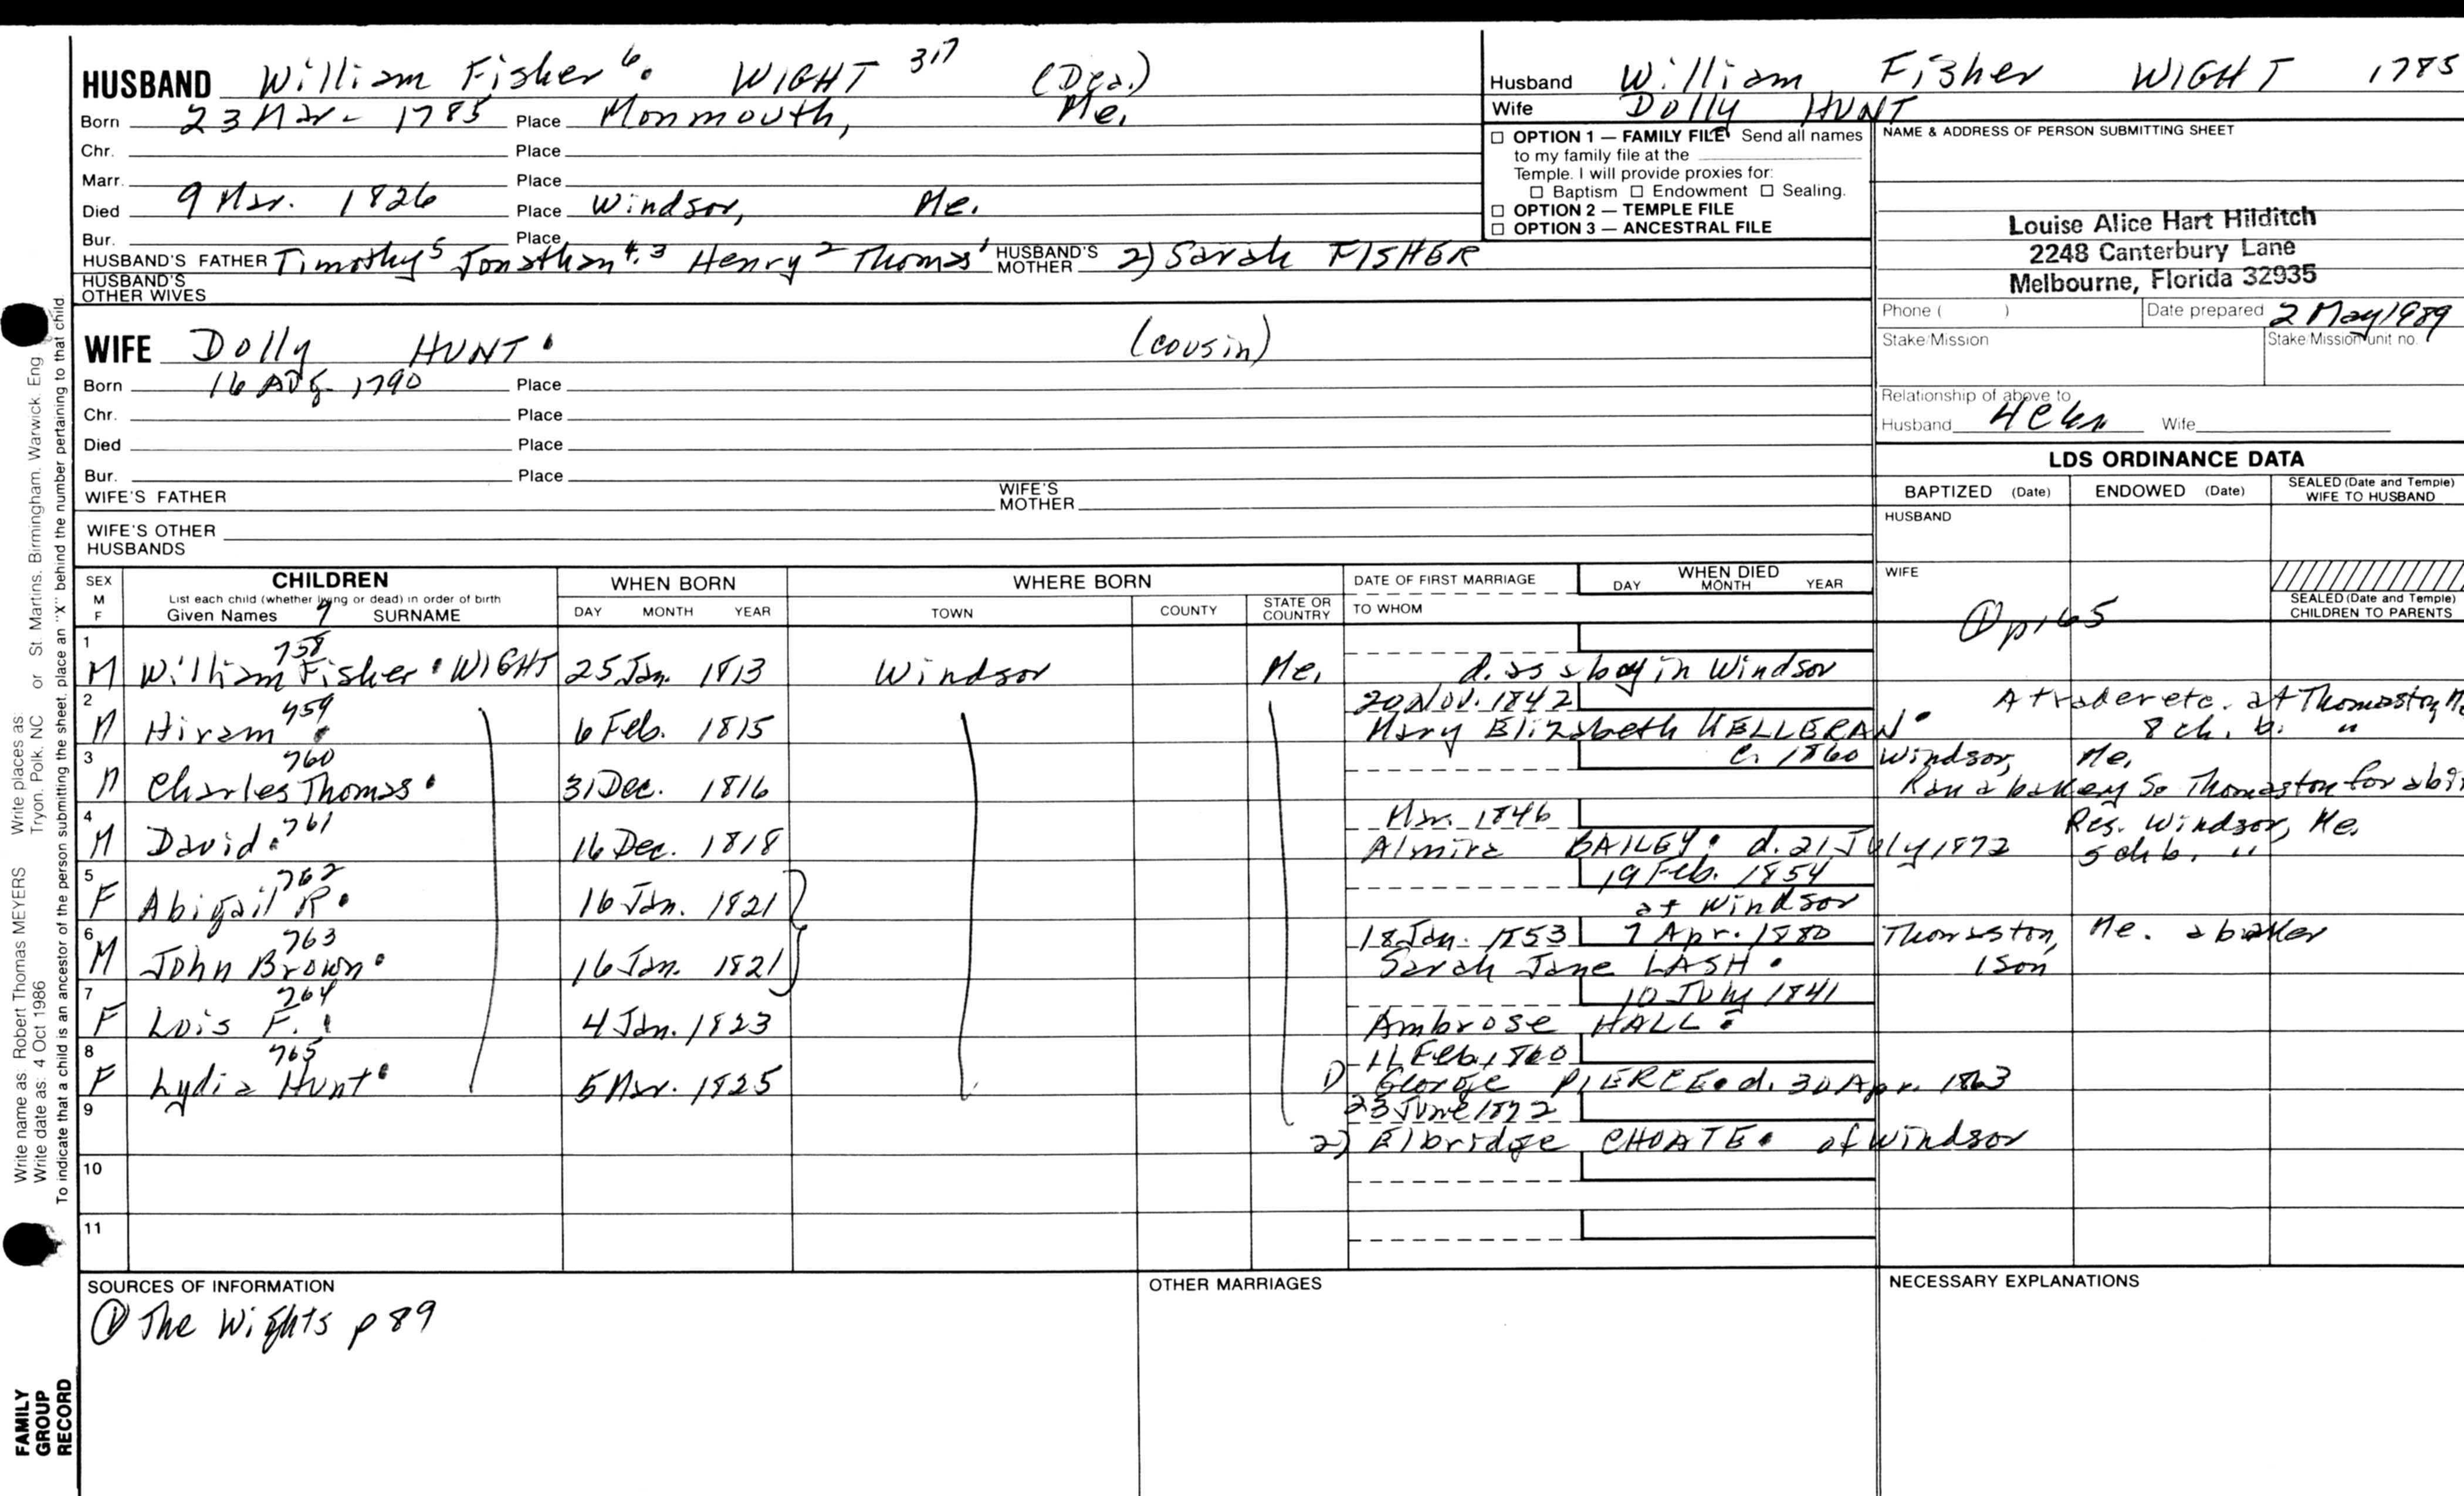 HUSBAND William Fisher 6. WIGHT 317 (Dea.)
Born 23 Mar. 1785 Place Monmouth, Me.
Chr. Place
Marr. Place
Died 9 Mar. 1826 Place Windsor, Me.
Bur. Place
HUSBAND'S FATHER Timothy 5 Jonathan 4,3 Henry 2 Thomas 1 HUSBAND'S MOTHER 2) Sarah FISHER
HUSBAND'S OTHER WIVES
WIFE Dolly HUNT. (cousin)
Born 16 Aug. 1790 Place
Chr. Place
Died Place
Bur. Place
WIFE'S FATHER WIFE'S MOTHER
WIFE'S OTHER HUSBANDS
Husband William Fisher WIGHT 1785
Wife Dolly HUNT
OPTION 1 — FAMILY FILE Send all names
to my family file at the
Temple. I will provide proxies for:
Baptism Endowment Sealing.
OPTION 2 — TEMPLE FILE
OPTION 3 — ANCESTRAL FILE
NAME & ADDRESS OF PERSON SUBMITTING SHEET
Louise Alice Hart Hilditch
2248 Canterbury Lane
Melbourne, Florida 32935
Phone ( ) Date prepared 2 May 1989
Stake/Mission Stake/Mission unit no.
Relationship of above to
Husband 4C6n Wife
LDS ORDINANCE DATA
BAPTIZED (Date) ENDOWED (Date) SEALED (Date and Temple) WIFE TO HUSBAND
HUSBAND
WIFE
SEALED (Date and Temple) CHILDREN TO PARENTS
① p165
SEX M F
CHILDREN
List each child (whether living or dead) in order of birth
Given Names 7 SURNAME
WHEN BORN
DAY MONTH YEAR
WHERE BORN
TOWN COUNTY STATE OR COUNTRY
DATE OF FIRST MARRIAGE
TO WHOM
WHEN DIED
DAY MONTH YEAR
1 758
M William Fisher. WIGHT 25 Jan. 1813 Windsor Me. d. as a boy in Windsor
2 759 20 Nov. 1842 A trader etc. at Thomaston,
M Hiram. 6 Feb. 1815 Mary Elizabeth KELLERAN. 8 ch. b. "
3 760 c. 1860 Windsor, Me.
M Charles Thomas. 31 Dec. 1816 Ran a bakery So Thomaston for a
4 761 Mar. 1846 Res. Windsor, Me.
M David. 16 Dec. 1818 Almira BAILEY. d. 21 July 1872 5 ch b. "
5 762 19 Feb. 1854
F Abigail R. 16 Jan. 1821 at Windsor
6 763 18 Jan. 1853 7 Apr. 1880 Thomaston, Me. a baker
M John Brown. 16 Jan. 1821 Sarah Jane LASH. 1 son
7 764 10 July 1841
F Lois F. 4 Jan. 1823 Ambrose HALL.
8 765 11 Feb. 1860
F Lydia Hunt. 5 Mar. 1825 1) George PIERCE. d. 30 Apr. 1863
9 23 June 1872
2) Elbridge CHOATE. of Windsor
10
11
SOURCES OF INFORMATION
① The Wights p 89
OTHER MARRIAGES
NECESSARY EXPLANATIONS
Write name as: Robert Thomas MEYERS Write places as: Tryon, Polk, NC or St. Martins, Birmingham, Warwick, Eng
Write date as: 4 Oct 1986
To indicate that a child is an ancestor of the person submitting the sheet, place an "X" behind the number pertaining to that child.
FAMILY
GROUP
RECORD